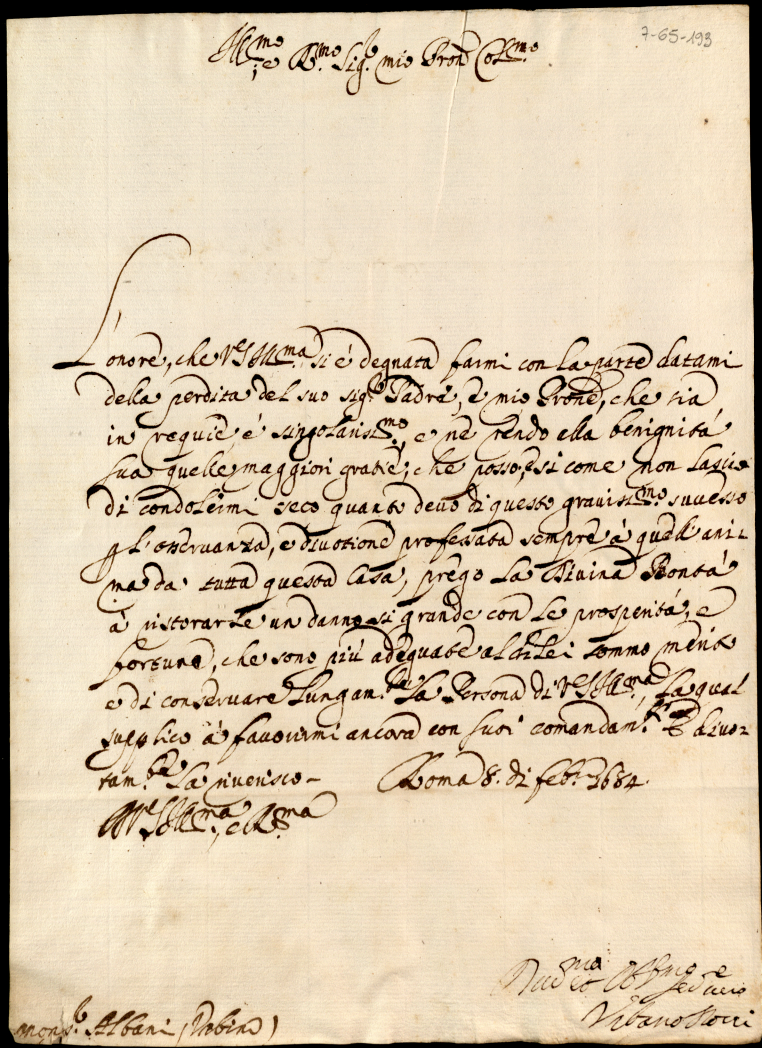 7-65-193
Ill.mo
e R.mo Sig.r mio Pron Col.mo
L'onore, che V.S. Ill.ma si è degnata farmi con la parte datami
della perdita del suo sig.r Padre, e mio Prone, che sia
in requie, è singolariss.mo, e ne rendo alla benignità
sua quelle maggiori gratie, che posso, e si come non lascio
di condolermi seco quanto devo di questo graviss.mo successo
p l'osservanza, e divotione professata sempre à quell'ani-
ma da tutta questa Casa, prego la Divina Bontà
à ristorarle un danno si grande con le prosperità, e
fortune, che sono più adequate al di lei sommo merito
e di conservare lungam.te la Persona di V.S. Ill.ma, la qual
supplico à favorirmi ancora con suoi comandam.ti E divo-
tam.te la riverisco-
Roma 8. di feb.o 1684.
D V.S. Ill.ma, e R.ma
Mons.r Albani (Urbino)
Div.mo et Obl.mo Se.re
vero
Urbano Rocci